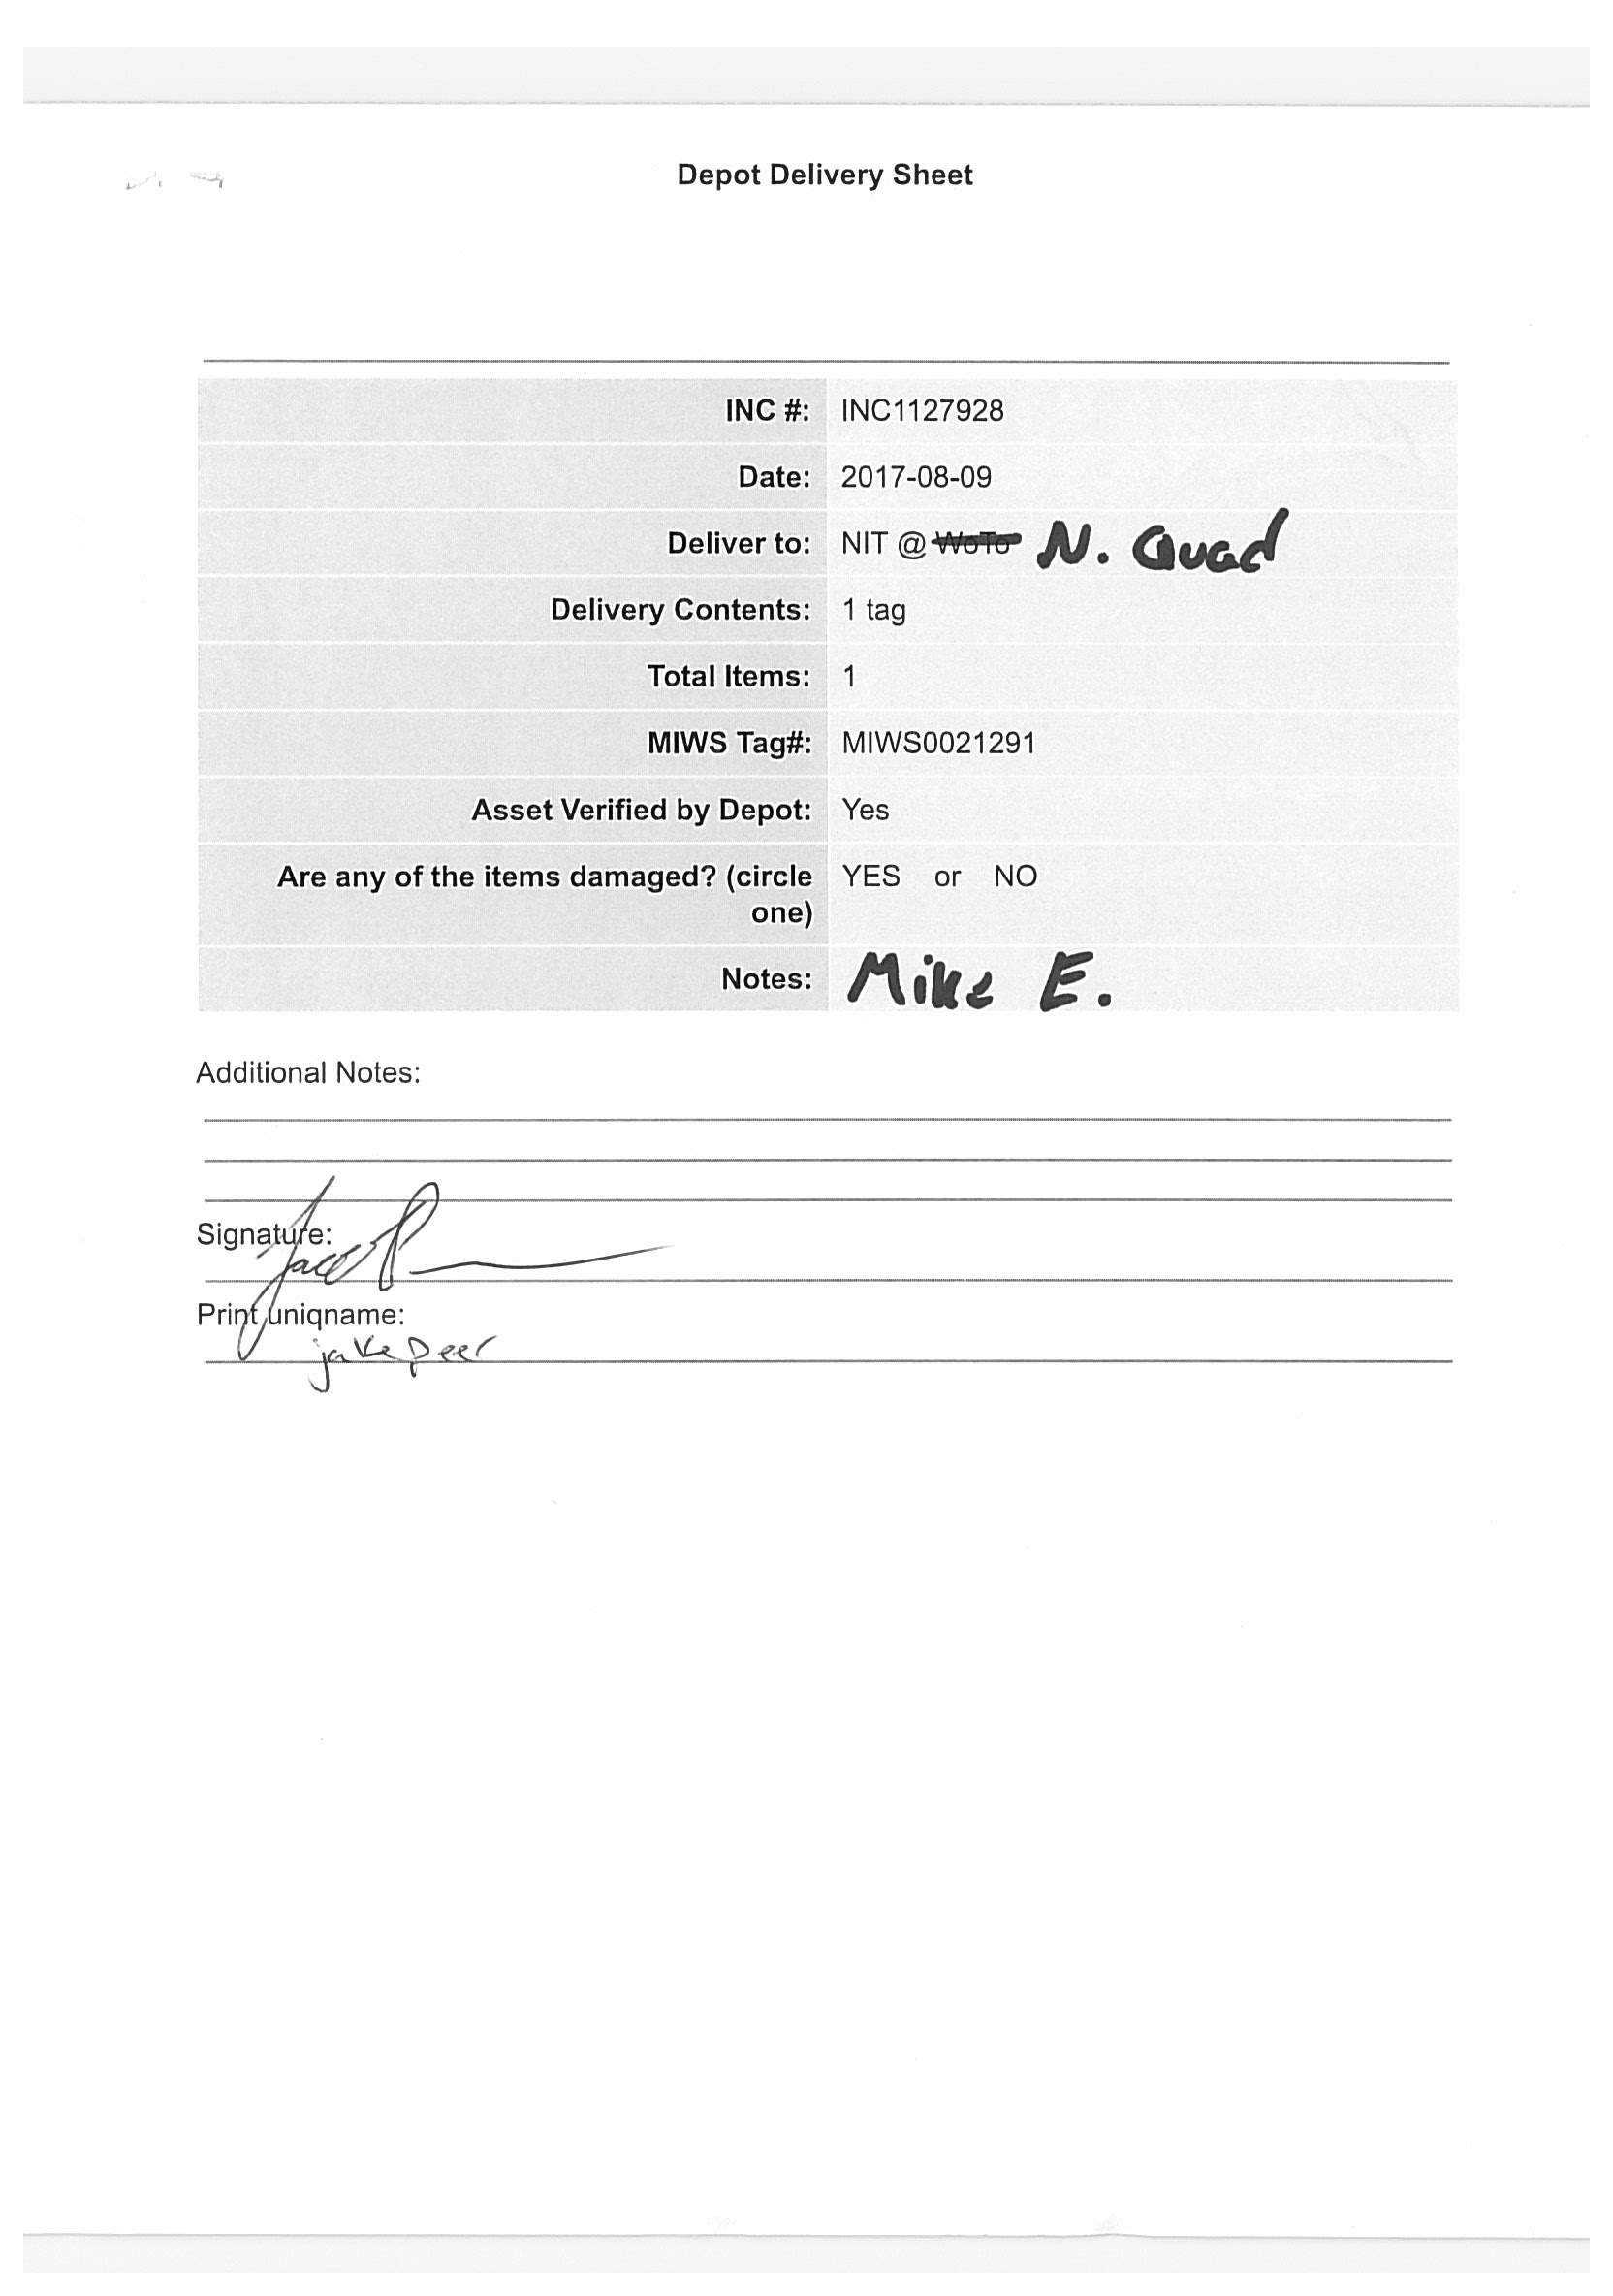 Depot Delivery Sheet
INC #: INC1127928
Date: 2017-08-09
Deliver to: NIT @ WoTo N. Quad
Delivery Contents: 1 tag
Total Items: 1
MIWS Tag#: MIWS0021291
Asset Verified by Depot: Yes
Are any of the items damaged? (circle YES or NO
one)
Notes: Mike E.
Additional Notes:
Signature:
Print uniqname:
jakepeer